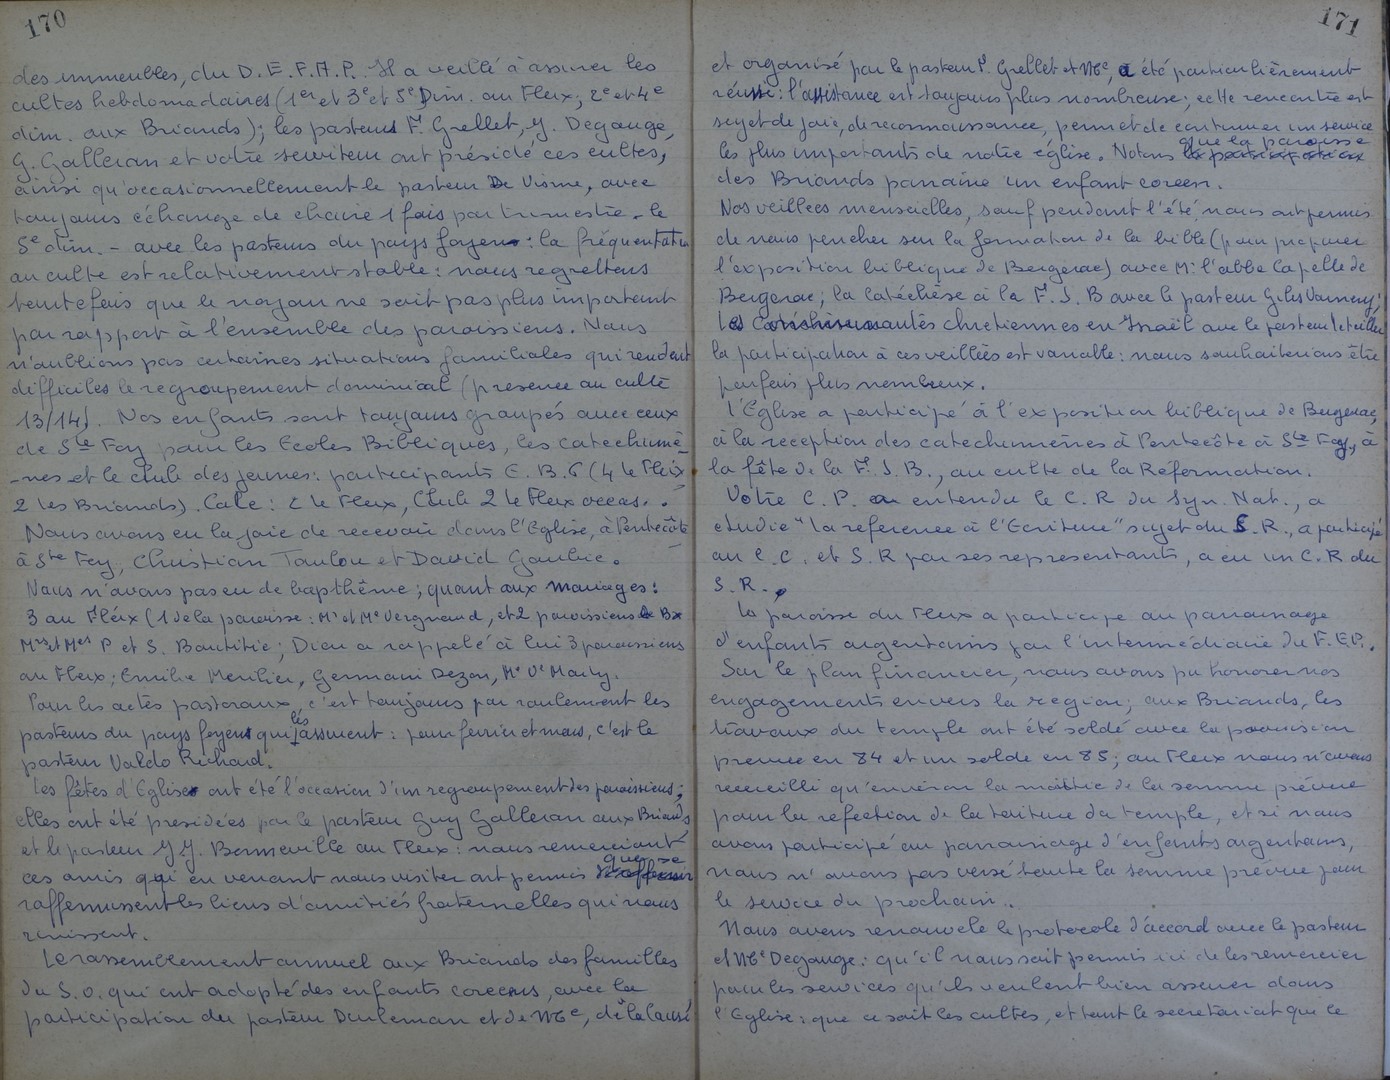 170
des immeubles, du D.E.F.A.P. Il a veillé à assurer les
cultes hebdomadaires (1er et 3e et 5e Dim. au Fleix; 2e et 4e
dim. aux Briands); les pasteurs F. Grellet, Y. Degauge,
G. Galleran et votre serviteur ont présidé ces cultes,
ainsi qu'occasionnellement le pasteur De Visme, avec
toujours échange de chaire 1 fois par trimestre - le
5e dim. - avec les pasteurs du pays foyen : la fréquentation
au culte est relativement stable : nous regrettons
toutefois que le noyau ne soit pas plus important
par rapport à l'ensemble des paroissiens. Nous
n'oublions pas certaines situations familiales qui rendent
difficiles le regroupement dominical (présence au culte
13/14). Nos enfants sont toujours groupés avec ceux
de Ste Foy pour les Ecoles Bibliques, les catéchumè-
-nes et le club des jeunes : participants E.B. 6 (4 le Fleix
2 les Briands). Cate : 2 le Fleix, Club 2 le Fleix occas.
Nous avons eu la joie de recevoir dans l'Eglise, à Pentecôte
à Ste Foy, Christian Toulou et David
Nous n'avons pas eu de bapthême ; quant aux mariages :
3 au Fleix (1 de la paroisse : Mr et Me Vergnaud, et 2 paroissiens de Bx
Mrs et Mes P et S. ; Dieu a rappelé à lui 3 paroissiens
au Fleix ; Emilie Merilier, Germain Dezon, Me Ve Marty.
Pour les actes pastoraux, c'est toujours par roulement les
pasteurs du pays foyens qui les assurent : pour février et mars, c'est le
pasteur Valdo Richard.
Les fêtes d'Eglise ont été l'occasion d'un regroupement des paroissiens ;
elles ont été présidées par le pasteur Guy Galleran aux Briands
et le pasteur Y.Y. Bonneville au Fleix : nous remercions
ces amis qui en venant nous visiter ont permis que se
raffermissent les liens d'amitiés fraternelles qui nous
unissent.
Le rassemblement annuel aux Briands des familles
du S.O. qui ont adopté des enfants coreens, avec la
participation du pasteur Deuleman et de Me, de la Causé
171
et organisé par le pasteur F. Grellet et Me, a été particulièrement
réussi : l'assistance est toujours plus nombreuse ; cette rencontre est
sujet de joie, de reconnaissance, permet de continuer un service
les plus importants de notre église. Notons que la paroisse
des Briands parraine un enfant coreen.
Nos veillées mensuelles, sauf pendant l'été, nous ont permis
de nous pencher sur la formation de la bible (pour préparer
l'exposition biblique de Bergerac) avec Mr l'abbé Capelle de
Bergerac ; la catéchèse à la F.J.B avec le pasteur Giles ;
les communautés chretiennes en Israël avec le pasteur
la participation à ces veillées est variable : nous souhaiterions être
parfois plus nombreux.
l'Eglise a participé à l'exposition biblique de Bergerac,
à la réception des catechumènes à Pentecôte à Ste Foy, à
la fête de la F.J.B., au culte de la Réformation.
Votre C.P. a entendu le C.R du Syn. Nat., a
étudié "la reference à l'Ecriture" sujet du S.R., a participé
au C.C. et S.R par ses representants, a eu un C.R du
S.R.
La paroisse du Fleix a participé au parrainage
d'enfants argentains par l'intermédiaire du F.E.P..
Sur le plan financier, nous avons pu honorer nos
engagements envers la région ; aux Briands, les
travaux du temple ont été soldé avec la provision
prevue en 84 et un solde en 85 ; au Fleix nous n'avons
recueilli qu'environ la moitié de la somme prévue
pour la refection de la toiture du temple, et si nous
avons participé au parrainage d'enfants argentains,
nous n'avons pas versé toute la somme prévue pour
le service du prochain..
Nous avons renouvelé le protocole d'accord avec le pasteur
et Me Degauge : qu'il nous soit permis ici de les remercier
pour les services qu'ils veulent bien assurer dans
l'Eglise : que ce soit les cultes, et tant le secrétariat que le